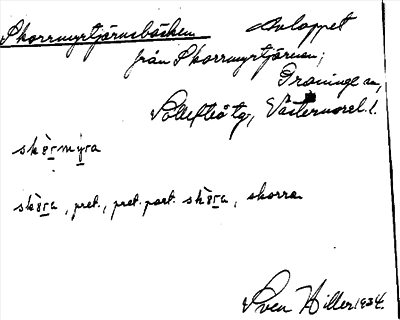 Skorrmyrtjärnsbäcken Avloppet
från Skorrmyrtjärnen,
Graninge sn,
Sollefteå tg, Västernorrl. l.
skɔ̀rmýra
skɔ̀ra, pret., pret. part. skɔ̀ra, skorra
Sven Hiller 1934.